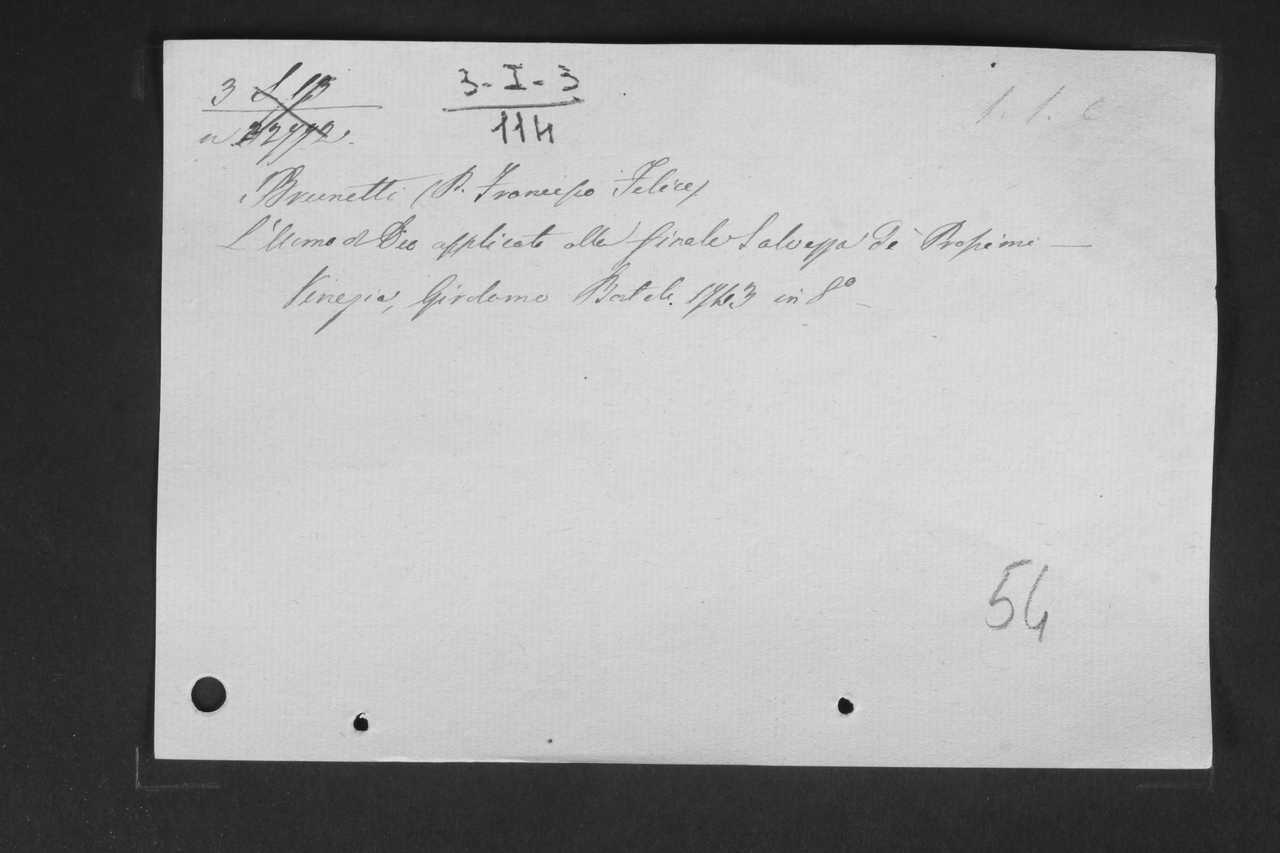 3 S 15
3-I-3
114
n. 22772.
1. 1. c
Brunetti (P. Francesco Felice)
L'Uomo di Dio applicato alla finale Salvezza de' Prossimi —
Venezia, Girolamo Bortoli. 1763 in 8º —
54